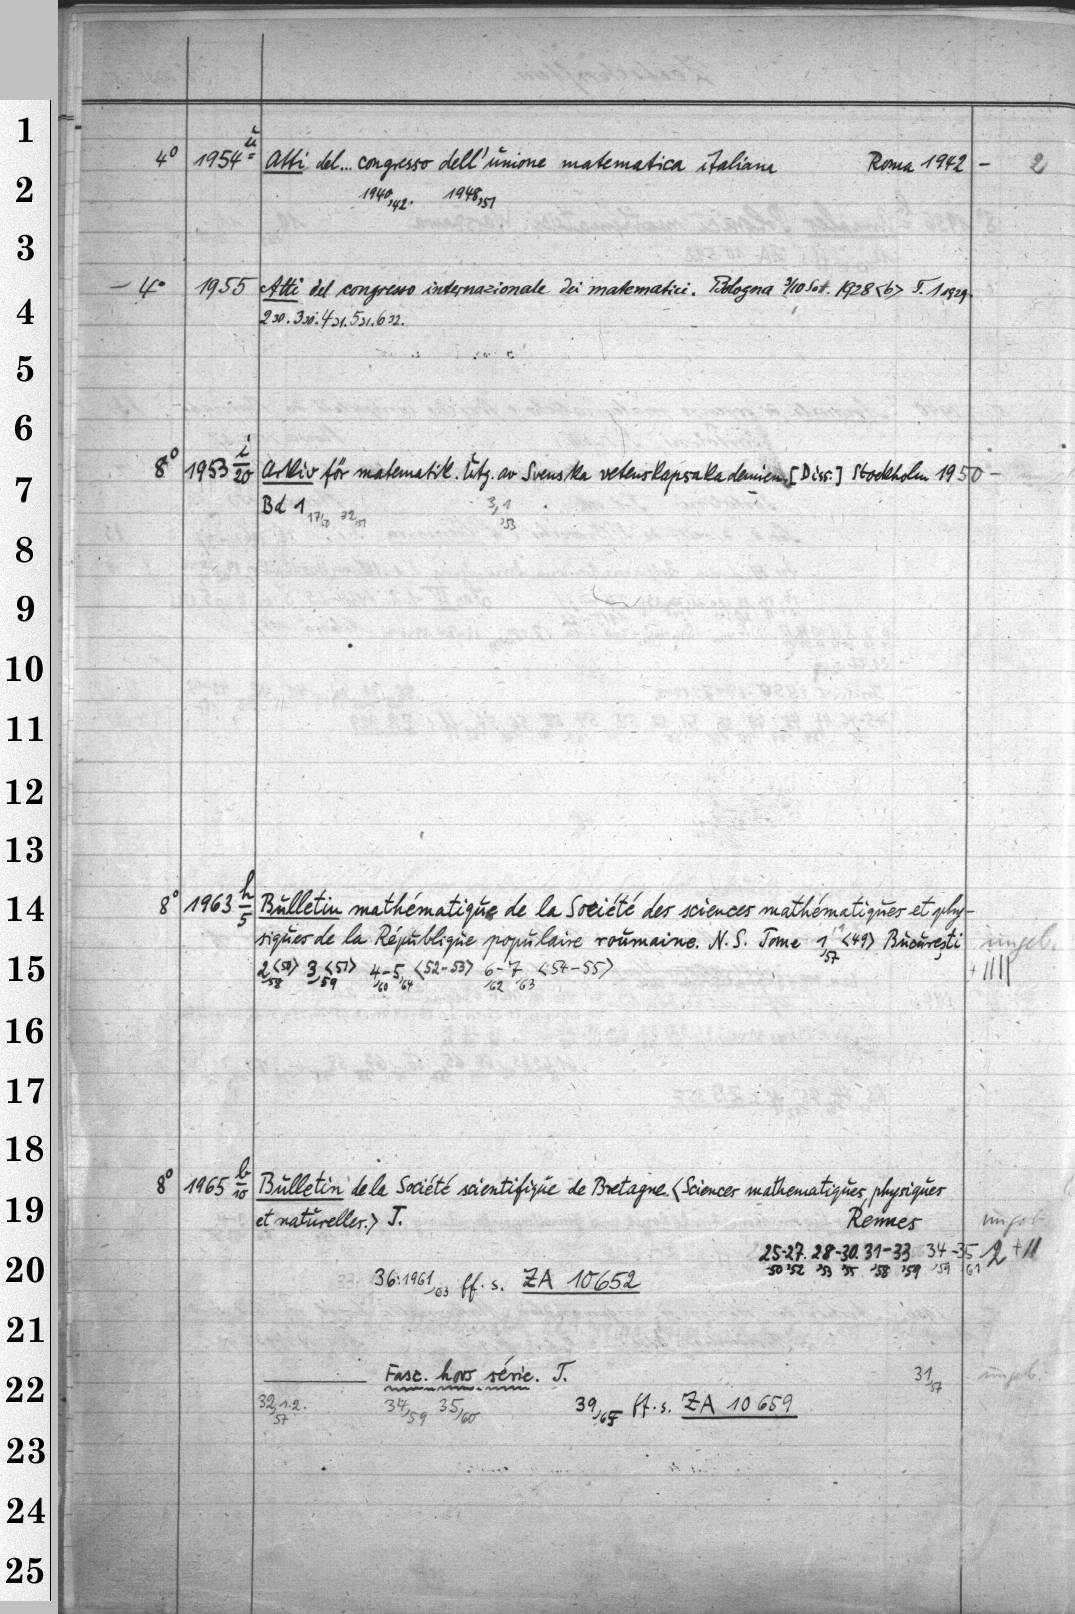 1
4° 1954 ü Atti del... congresso dell'unione matematica italiana Roma 1942 - 2
2
1940,42. 1948,51
3
- 4° 1955 Atti del congresso internazionale dei matematici. Bologna 3/10 Set. 1928 <6> T. 1 1929.
4
2 30. 3 30. 4 31. 5 31. 6 32.
5
6
8° 1953 i/20 Arkiv för matematik. Utg. av Svenska vetenskapsakademien. [Diss.] Stockholm 1950 -
7
Bd 1 3,1 ,53
8
9
10
11
12
13
8° 1963 h/5 Bulletin mathématique de la Société des sciences mathématiques et phy-
14
siques de la République populaire roumaine. N.S. Tome 1,57 <49> București ungeb.
15
2,58 <50> 3,59 <51> 4-5 ,60 ,64 <52-53> 6-7 ,62 ,63 <54-55> + IIII
16
17
18
8° 1965 b/10 Bulletin de la Société scientifique de Bretagne. <Sciences mathematiques, physiques
19
et naturelles.> T. Rennes ungeb.
25-27. 28-30. 31-33 34-35 2 + II
20
,50 ,52 ,53 ,55 ,58 ,59 ,59 ,61
36:1961,63 ff. s. ZA 10652
21
Fasc. hors série. T. 31,57 ungeb.
22
32,1.2. ,57 34,59 35,60 39,65 ff. s. ZA 10659
23
24
25